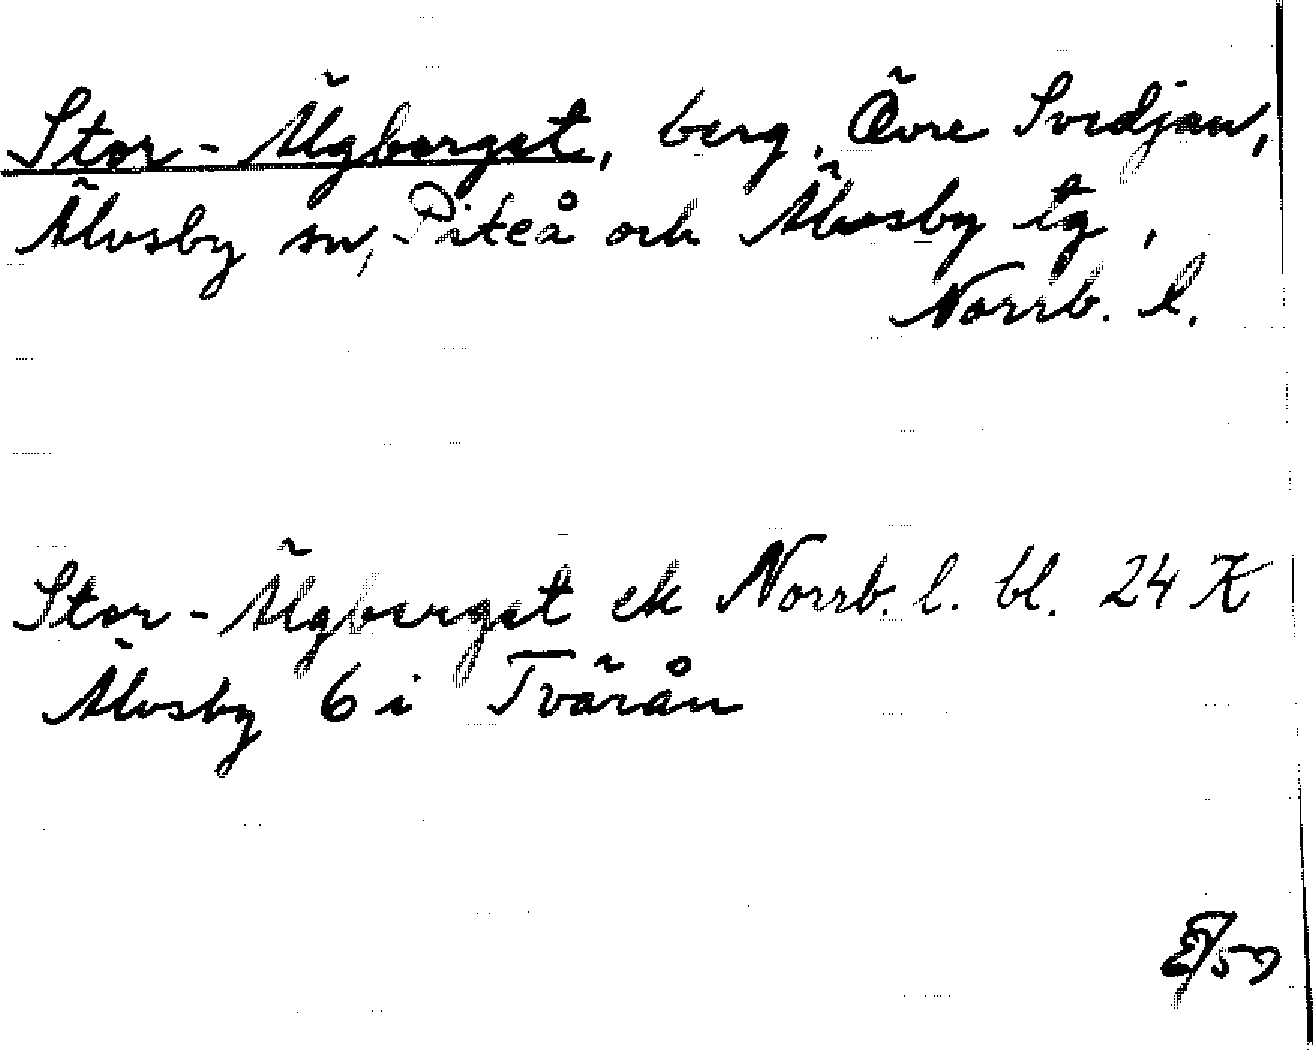 Stor-Älgberget, berg, Övre Svedjan,
Älvsby sn, Piteå och Älvsby tg,
Norrb. l.
Stor-Älgberget ek Norrb. l. bl. 24 K
Älvsby 6 i Tvärån